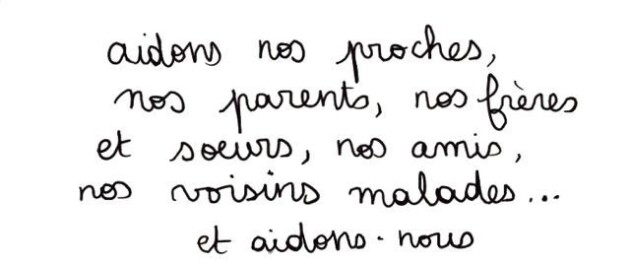 aidons nos proches,
nos parents, nos frères
et soeurs, nos amis,
nos voisins malades...
et aidons-nous